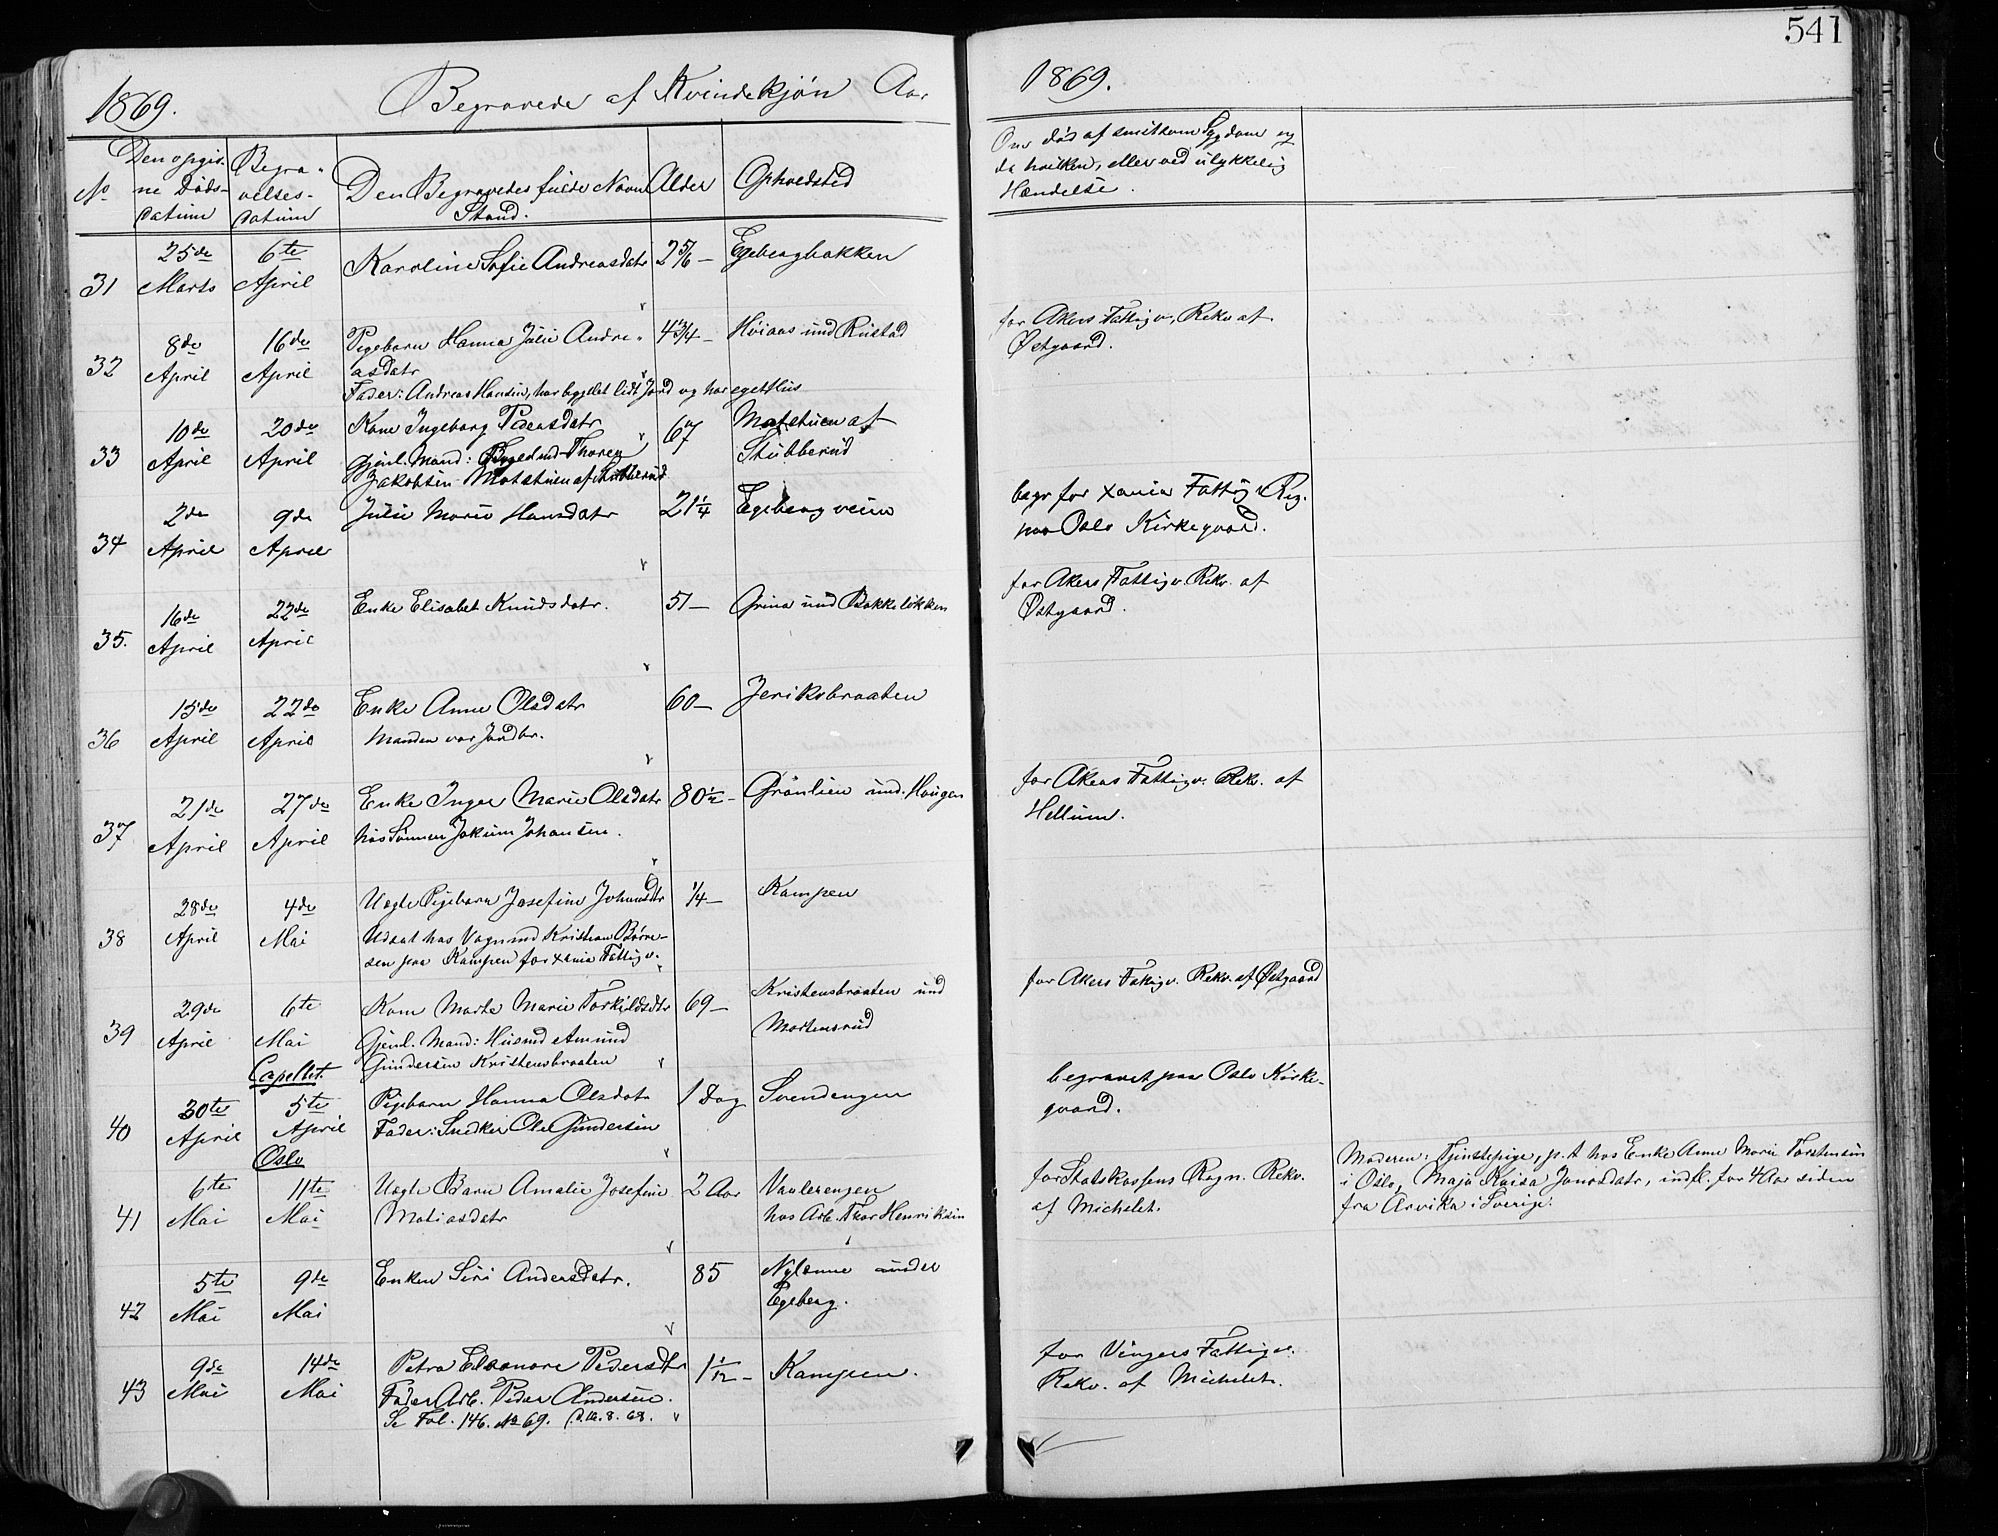 541
1869. Begravede af Kvindekjøn Aar 1869.
No
Den opgiv-
ne Døds-
datum
Begra-
velses-
datum
Den Begravedes fulde Navn
Stand.
Alder
Opholdsted
Om død af smitsom Sygdom og
da hvilken, eller ved ulykkelig
Hændelse.
31
25de
Marts
6te
April
Karoline Sofie Andreasdatr
2 5/6 –
Egebergbakken
32
8de
April
16de
April
Pigebarn Hanna Julie Andre-
asdatr
Fader: Andreas Hansen, har bygslet lidt Jord og har eget Hus
4 3/4 –
Høiaas und Rustad
for Akers Fattigv. Rekv af
Østgaard.
33
10de
April
20de
April
Kone Ingeborg
Gjenl. Mand: Thoren
Jakobsen Matstuen af Stubberud
67
Matstuen af
Stubberud
34
2de
April
9de
April
Julie Marie Hansdatr
21 1/4
Egebergveien
begr for Xania Fattigv Reg.
paa Oslo Kirkegaard.
35.
16de
April
22de
April
Enke Elisabet Knudsdatr.
51 –
Grina und Bakkeløkken
for Akers Fattigv. Rekv. af
Østgaard.
36
15de
April
22de
April
Enke Anne Olsdatr
Manden var Jordbr.
60 –
Jerikobraaten
37
21de
April
27de
April
Enke Inger Marie Olsdatr
hos Sønnen Jokum Johansen.
80 1/2 –
Grønlien und. Haugen
for Akers Fattigv. Rekv. af
Hellum.
38
28de
April
4de
Mai
Uægte Pigebarn Josefine Johansdtr
Udsat hos Vognmd Kristian Børre-
sen paa Kampen for Xania Fattigv.
1/4 –
Kampen
39
29de
April
6te
Mai
Capellet.
Kone Marte Marie Torkildsdtr
Gjenl. Mand: Husmd Amund
Gundersen Kristensbraaten
69 –
Kristensbraaten und
Mortensrud
for Akers Fattigv. Rekv. af Østgaard
40
30te
April
5te
April
Oslo
Pigebarn Hanna Olsdatr
Fader: Snedker Ole Gundersen
1 Dag
Svendengen
begravet paa Oslo Kirke-
gaard.
41
6te
Mai
11te
Mai
Uægte Barn Amalie Josefine
Matiasdatr
2 Aar
Vaalerengen
hos Arb. Thor Henriksen
for Statskassens Regn. Rekv.
af Michelet.
Moderen: Tjenstepige, p.t hos Enke Anne Marie Torstensen
i Oslo, Maja Kaisa Jonasdatr, indfl. for 4 Aar siden
fra Arvika i Sverige.
42
5te
Mai
9de
Mai
Enken Siri Andersdatr.
85
Nylænne under
Egeberg.
43
9de
Mai
14de
Mai
Petra Eleonore Pedersdtr
Fader Arb. Peder Andersen.
Se Fol. 146. No 69.
1 1/12 –
Kampen.
for Vingers Fattigv.
Rekv. af Michelet.